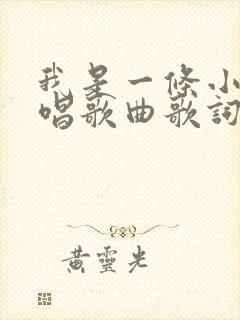 我是一條小
唱歌曲歌詞
黃靈光